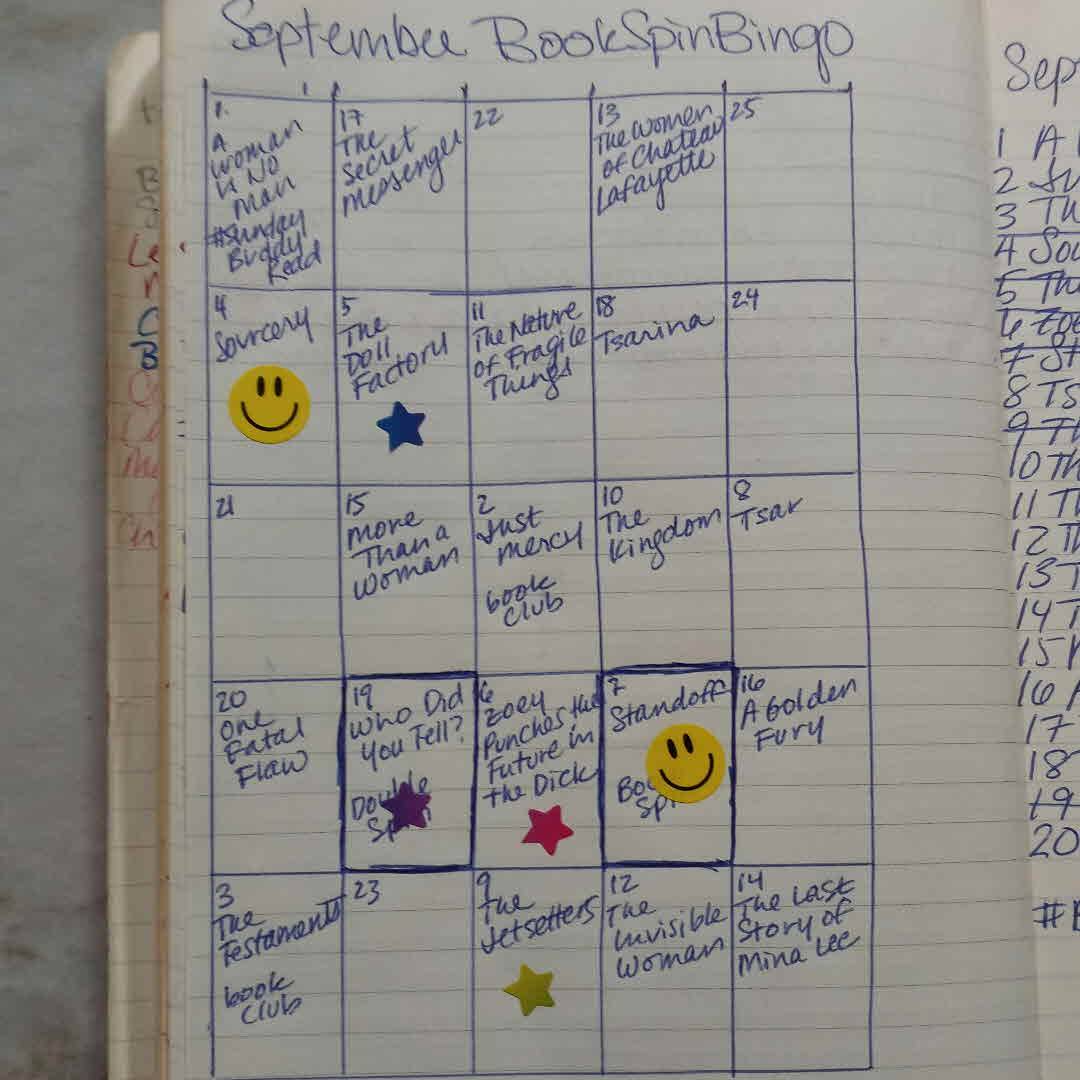 September BookSpinBingo
1.
A
Woman
is No
Man
#Sunday
Buddy
Read
17
The
Secret
Messenger
22
13
The Women
of Chateau
Lafayette
25
4
Sourcery
5
The
Doll
Factory
11
The Nature
of Fragile
Things
18
Tsarina
24
21
15
More
Than a
Woman
2
Just
Mercy
book
club
10
The
Kingdom
8
Tsar
20
One
Fatal
Flaw
19
Who Did
You Tell?
Double
Spin
6
Zoey
Punches the
Future in
the Dick
7
Standoff
16
A Golden
Fury
3
The
Testaments
book
club
23
9
The
Jetsetters
12
The
Invisible
Woman
14
The Last
Story of
Mina Lee
Sep
1 A
2 Ju
3 Th
4 Sou
5 The
6 Zoe
7 St
8 Ts
9 Th
10 Th
11 Th
12 Th
13 T
14 T
15
16 A
17
18
19
20